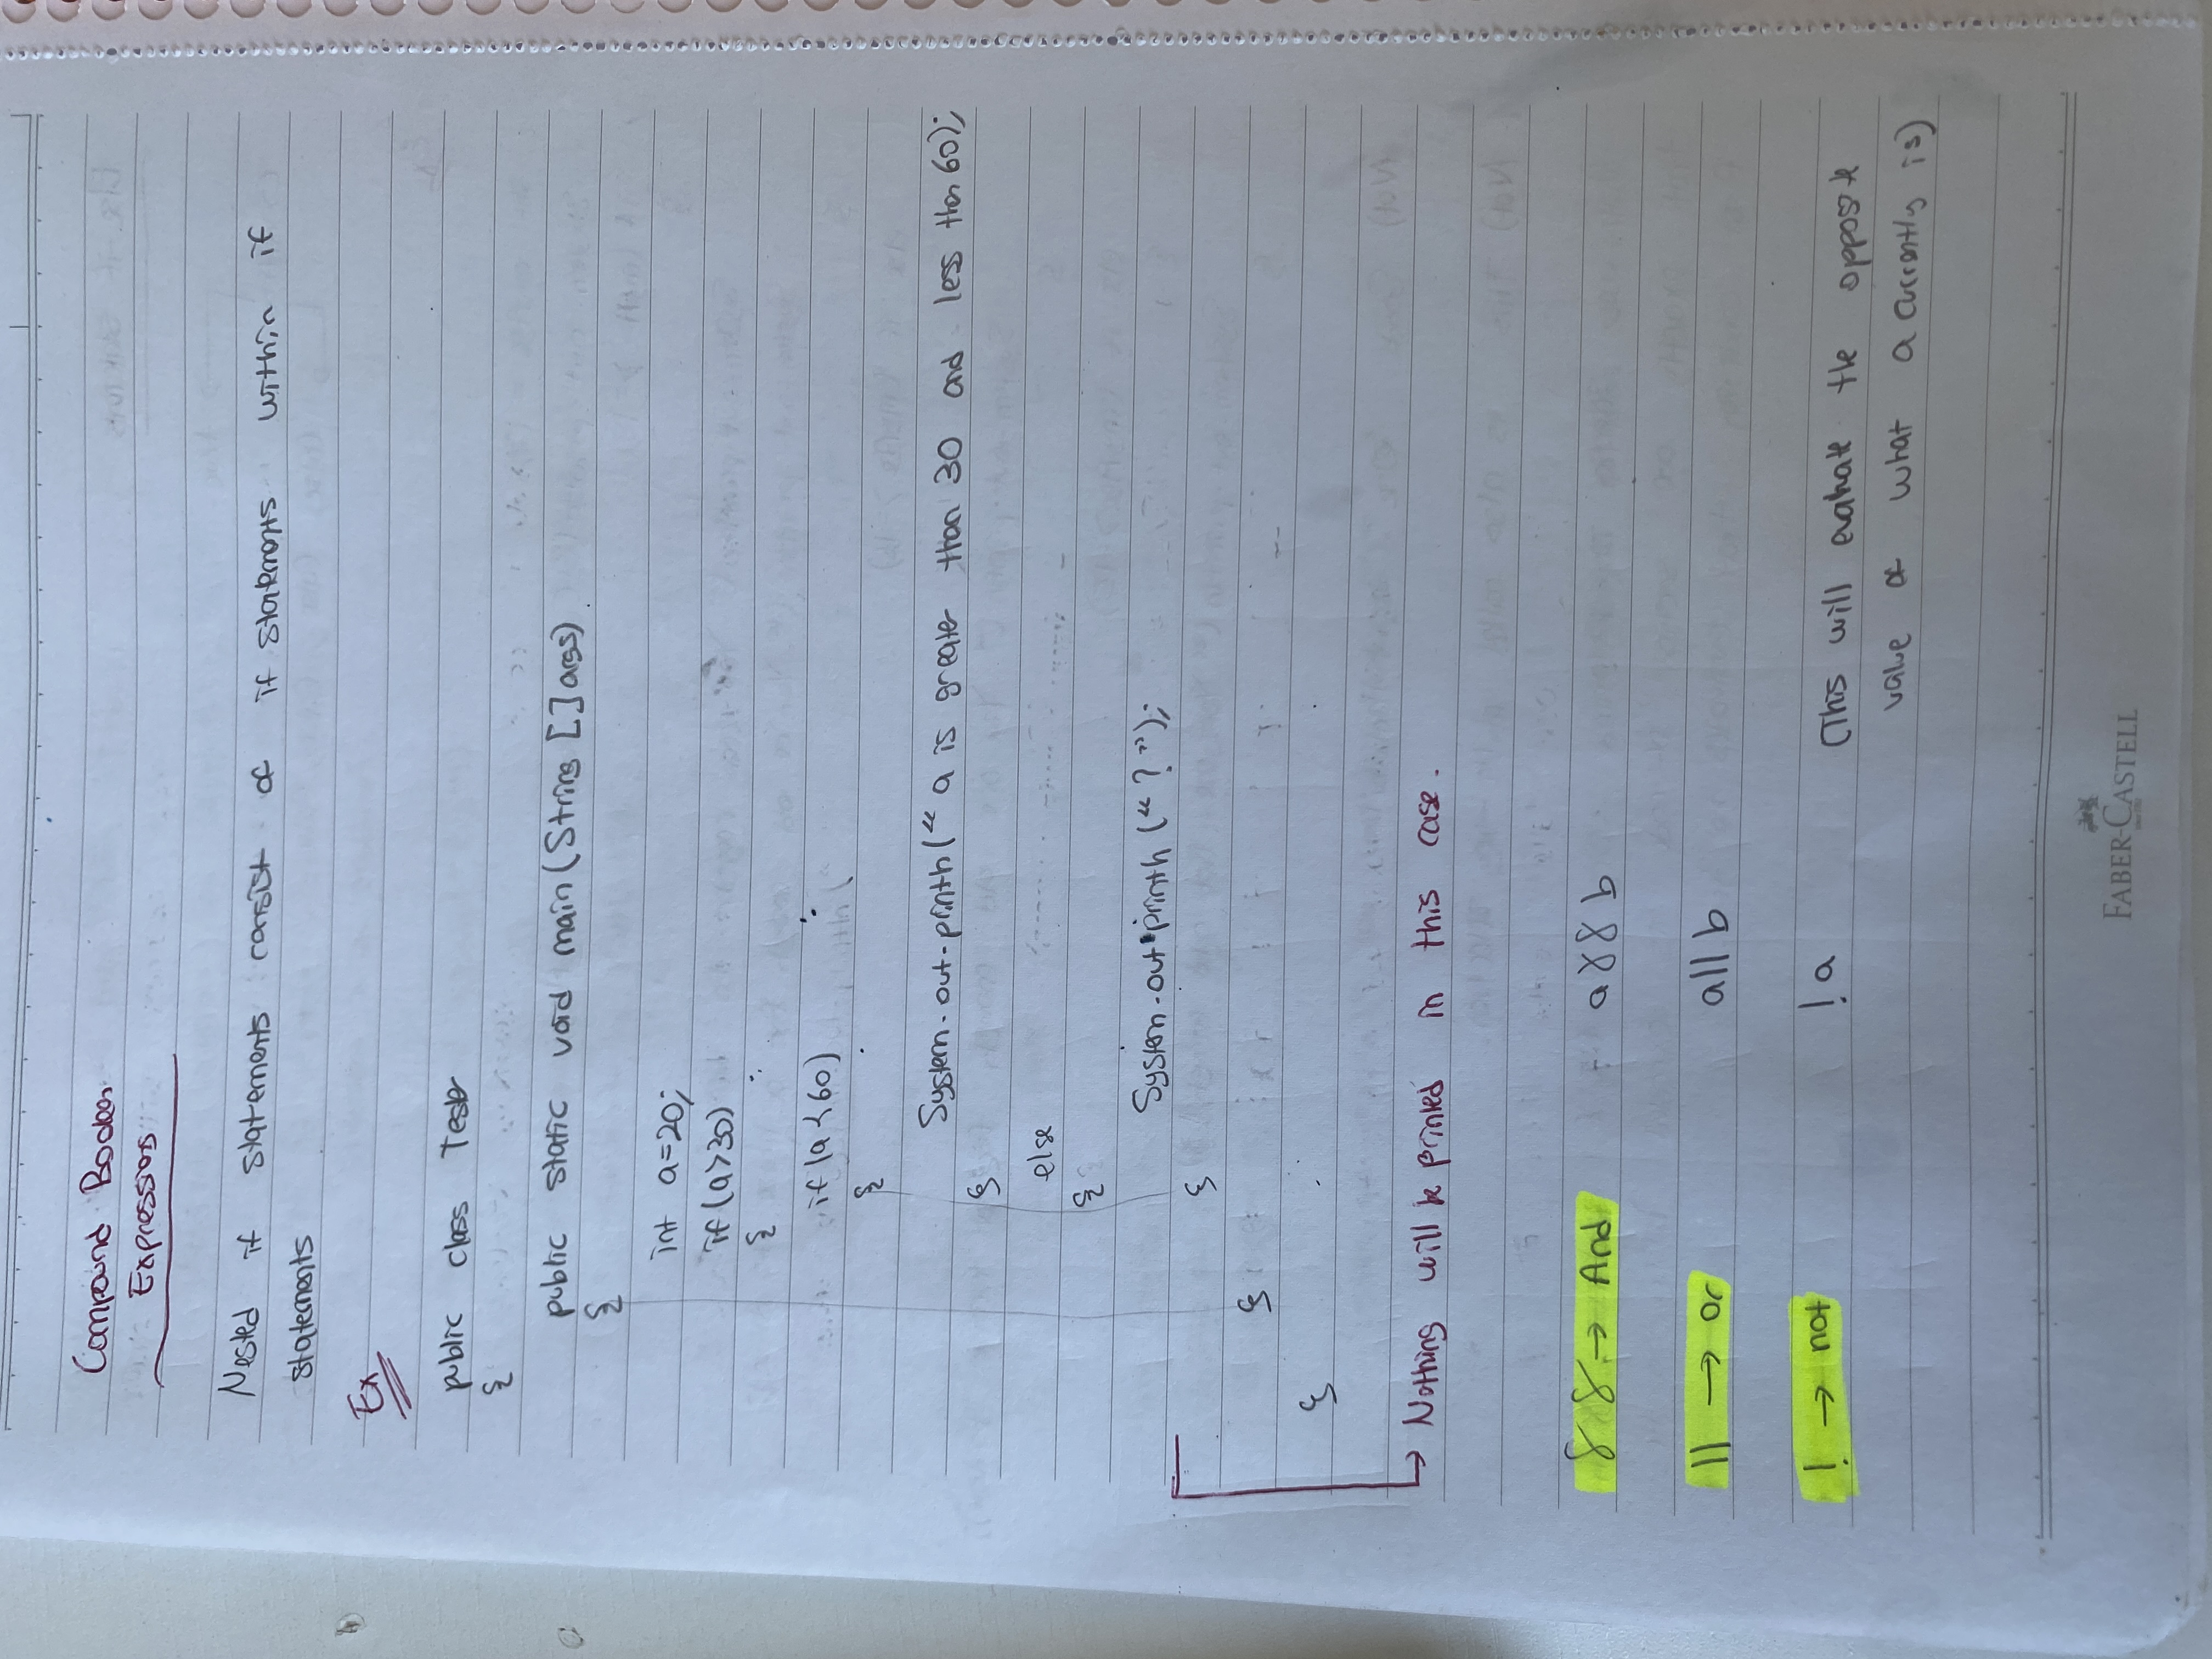 Compound Boolean
Expressions
Nested if statements consist of if statements within if
statements
Ex
public class Tester
{
public static void main(String []args)
{
int a=20;
if(a>30)
{
if(a<60)
{
System.out.println(“ a is greater than 30 and less than 60);
}
else
{
System.out.println (“ ? ”);
}
}
}
Nothing will be printed in this case.
&& → And a&&b
|| → or a||b
! → not !a (This will evaluate the opposite
value of what a currently is)
FABER-CASTELL